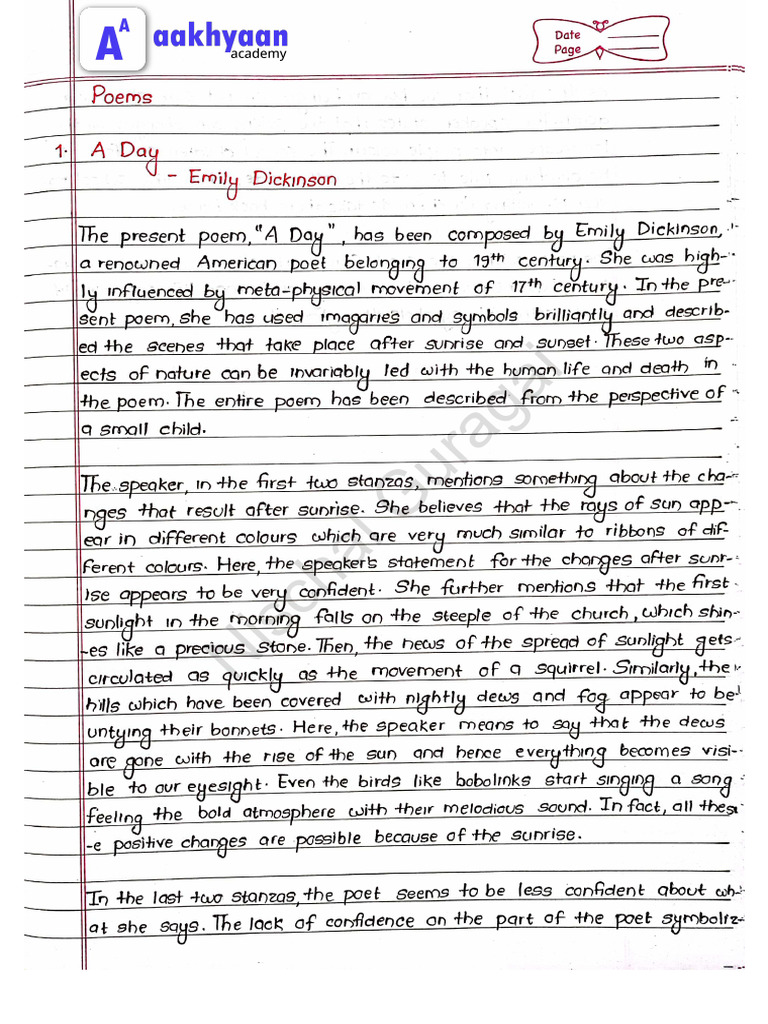 A A aakhyaan
academy
Date
Page
Poems
1. A Day
- Emily Dickinson
The present poem, "A Day", has been composed by Emily Dickinson,
a renowned American poet belonging to 19th century. She was high-
ly influenced by meta-physical movement of 17th century. In the pre-
sent poem, she has used imagaries and symbols brilliantly and describ-
ed the scenes that take place after sunrise and sunset. These two asp-
ects of nature can be invariably led with the human life and death in
the poem. The entire poem has been described from the perspective of
a small child.
The speaker, in the first two stanzas, mentions something about the cha-
nges that result after sunrise. She believes that the rays of sun app-
ear in different colours which are very much similar to ribbons of dif-
ferent colours. Here, the speaker's statement for the changes after sunr-
ise appears to be very confident. She further mentions that the first
sunlight in the morning falls on the steeple of the church, which shin-
-es like a precious stone. Then, the news of the spread of sunlight gets
circulated as quickly as the movement of a squirrel. Similarly, the
hills which have been covered with nightly dews and fog appear to be
untying their bonnets. Here, the speaker means to say that the dews
are gone with the rise of the sun and hence everything becomes visi-
ble to our eyesight. Even the birds like bobolinks start singing a song
feeling the bold atmosphere with their melodious sound. In fact, all thes
-e positive changes are possible because of the sunrise.
In the last two stanzas, the poet seems to be less confident about wh-
at she says. The lack of confidence on the part of the poet symboliz-
Nischal Guragai